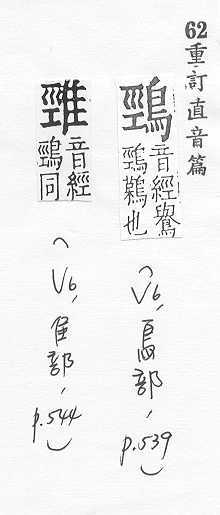 62重訂直音篇
鵛音經鸒
鵛鶧也
(V6,鳥部,p.539)
䧹音經
鵛同
(V6,隹部,p.544)